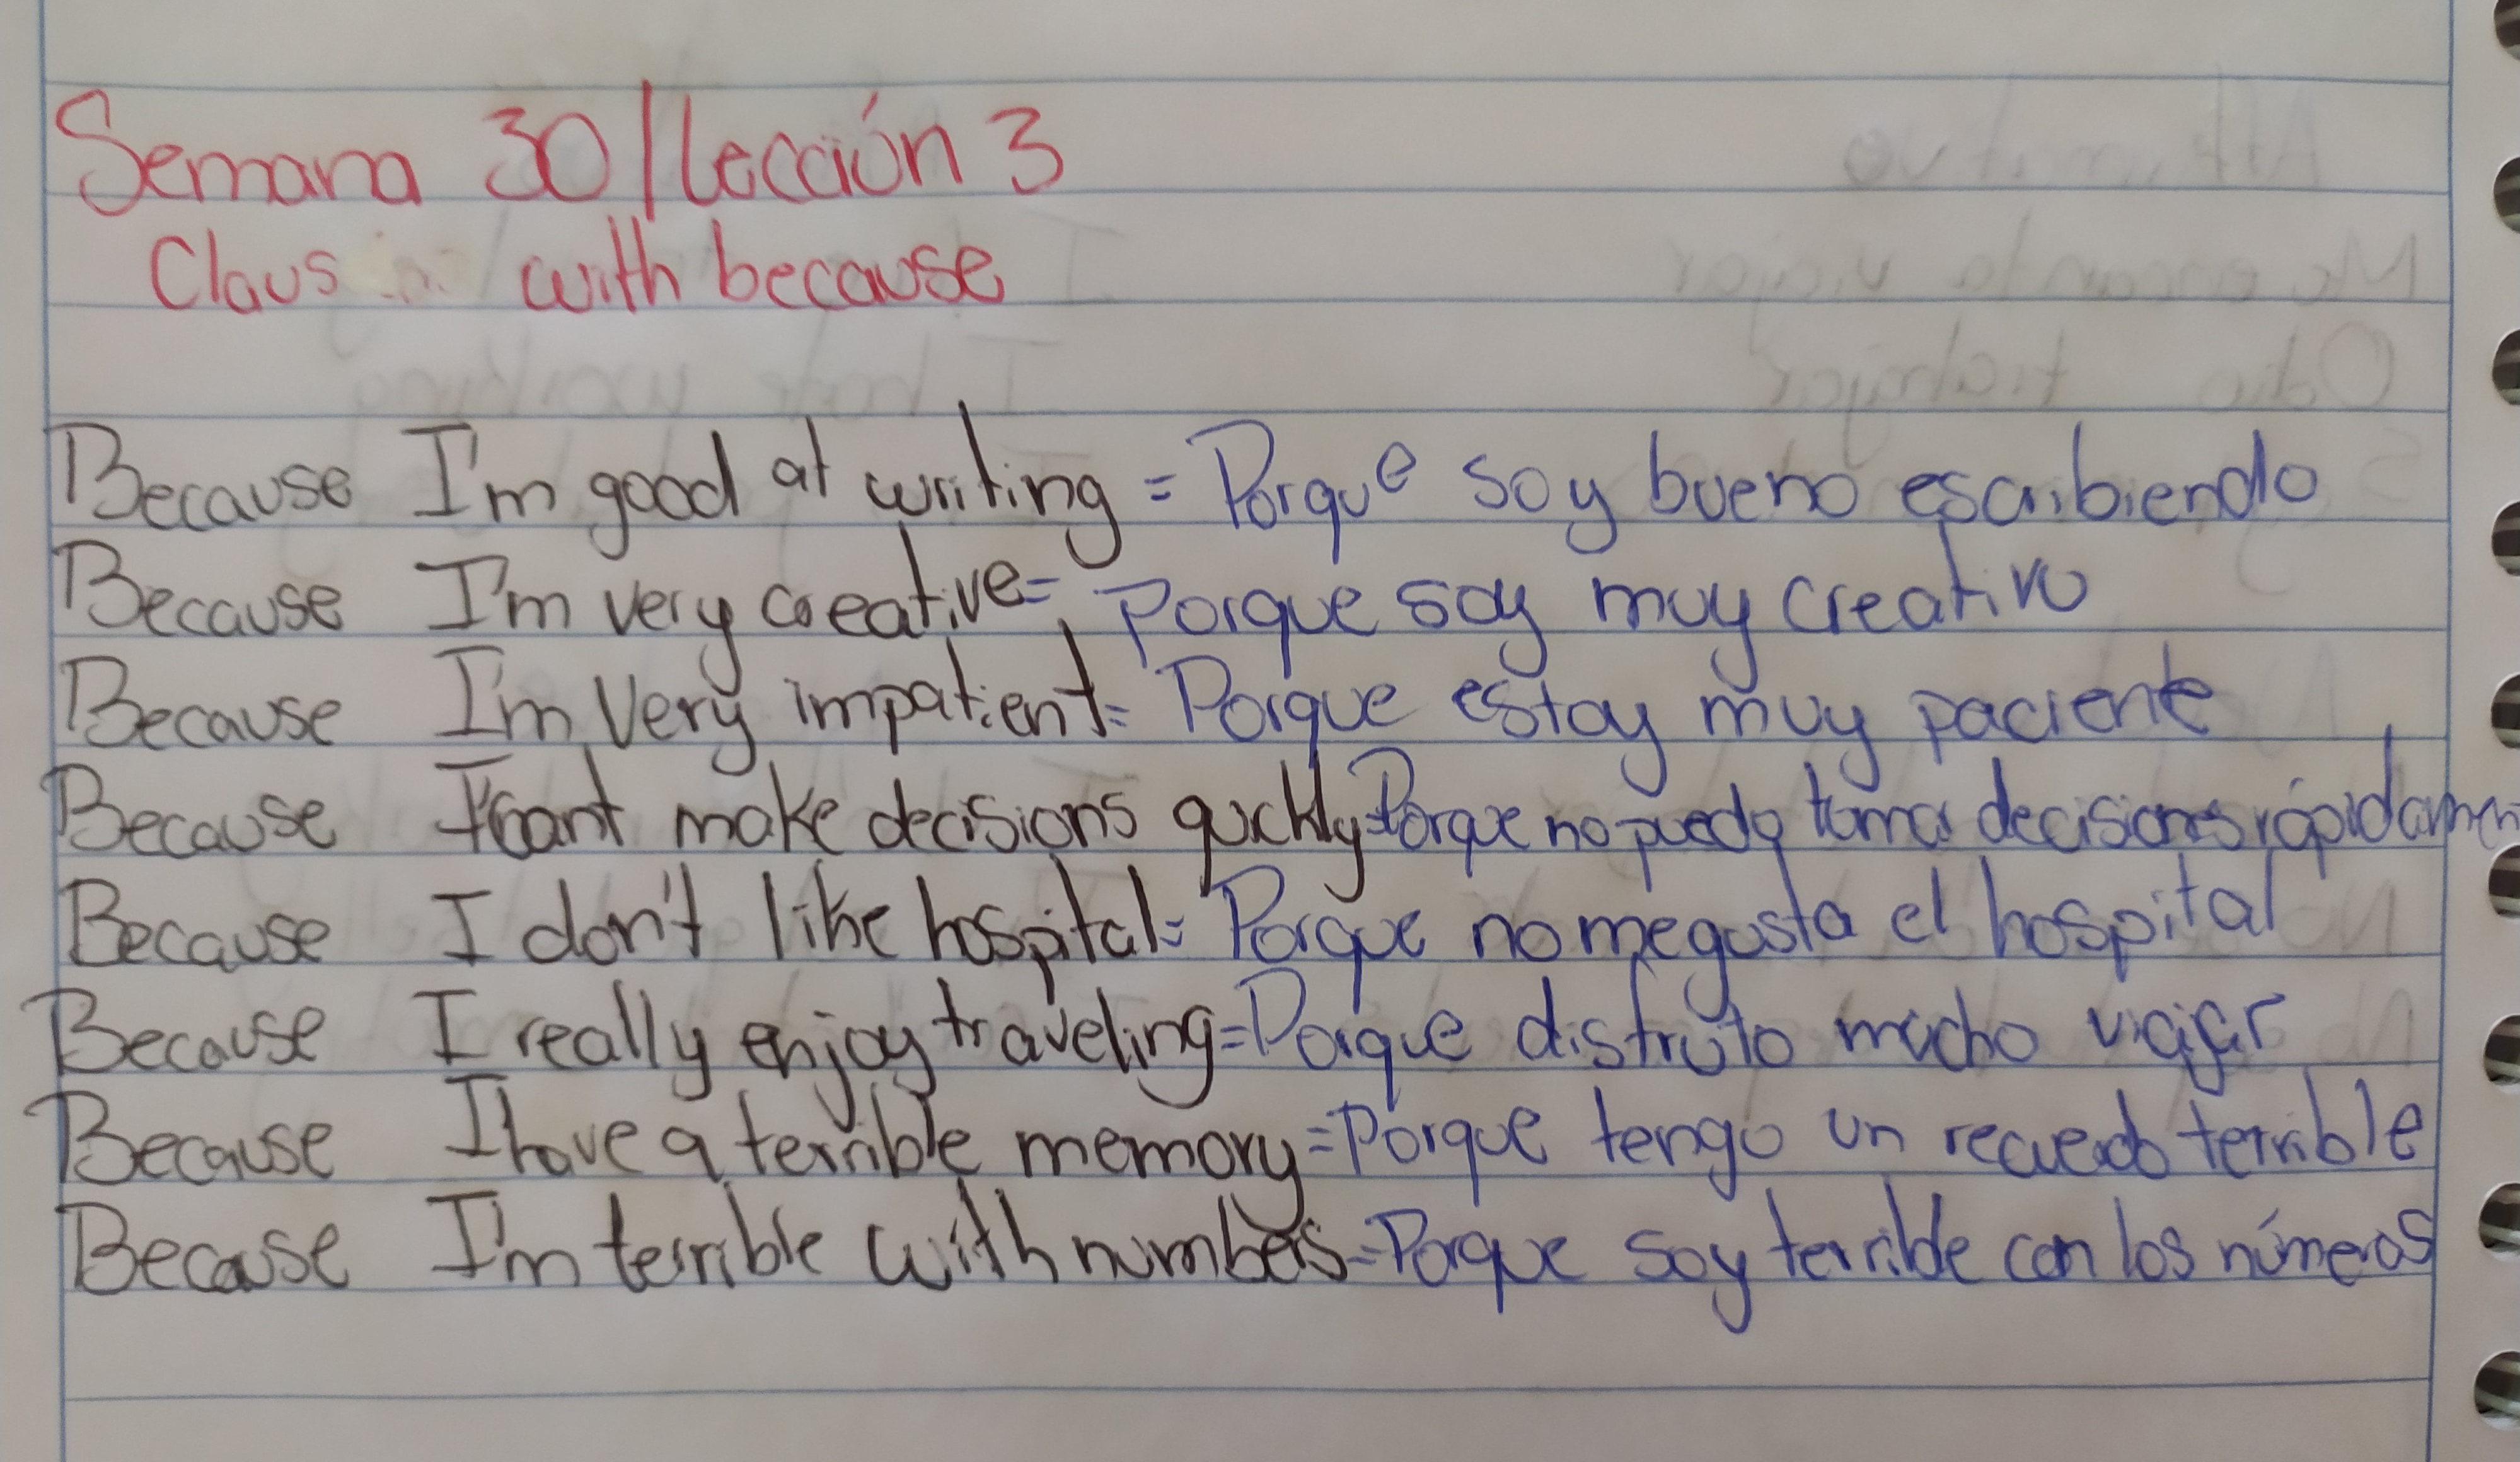 Semana 30/Lección 3
Claus with because
Because I'm good at writing = Porque soy bueno escribiendo
Because I'm very creative = Porque soy muy creativo
Because I'm Very impatient = Porque estoy muy paciente
Because I cant make decisions quckly = Porque no puedo tomar decisiones rápidamen
Because I don't like hospital = Porque no me gusta el hospital
Because I really enjoy traveling = Porque disfruto mucho viajar
Because I have a terrible memory = Porque tengo un recuerdo terrible
Because I'm terrible with numbers = Porque soy terrible con los números